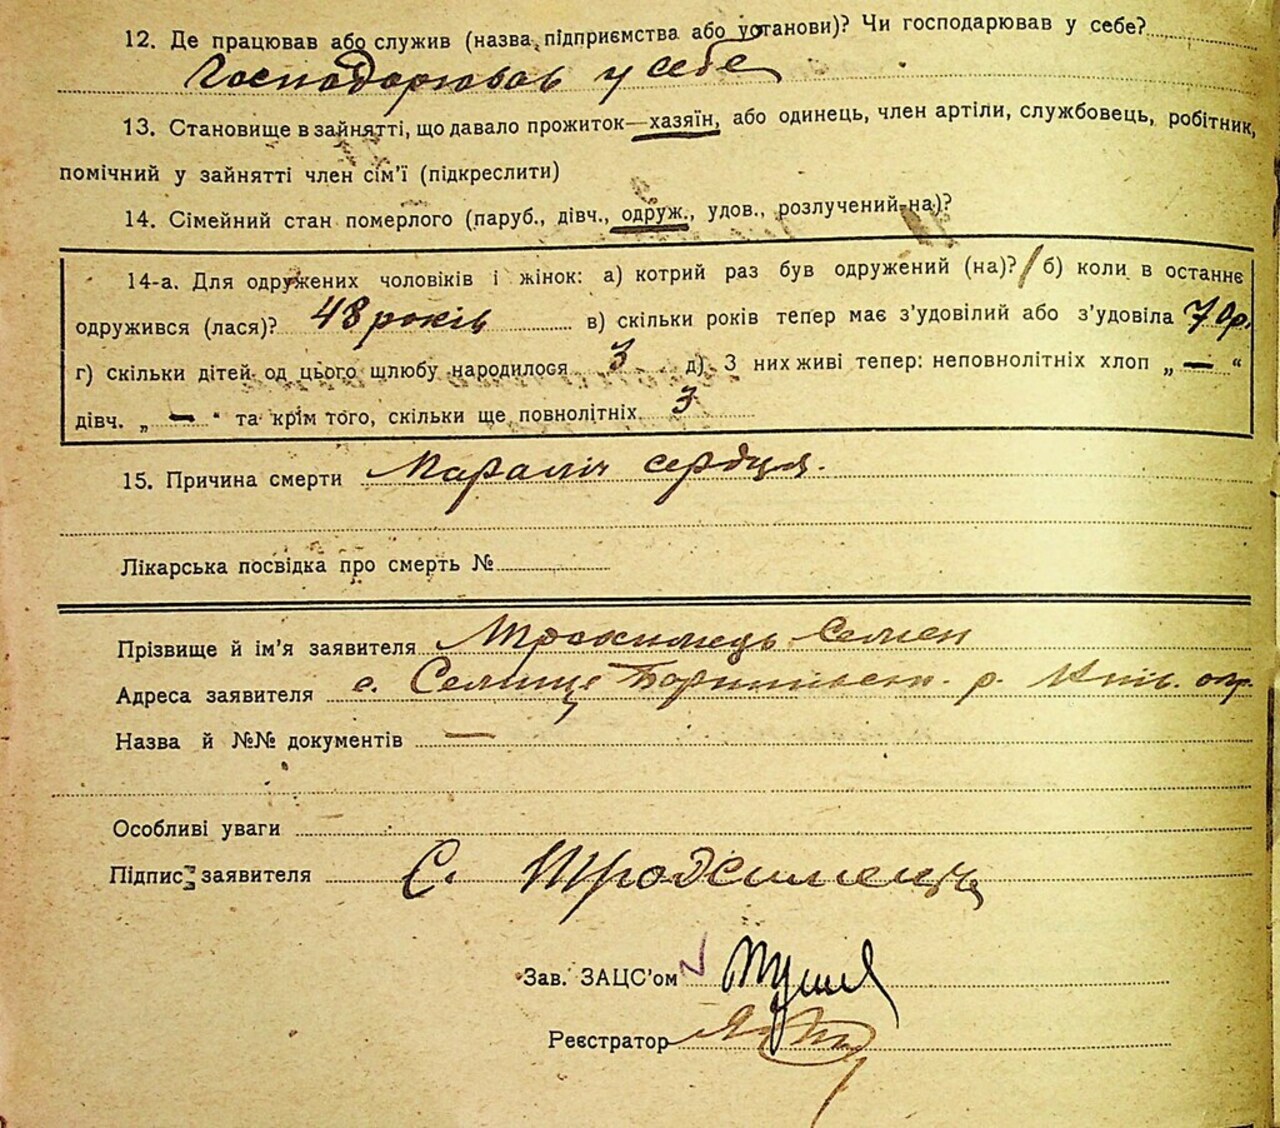 12. Де працював або служив (назва підприємства або установи)? Чи господарював у себе?
Господарював у себе
13. Становище в зайнятті, що давало прожиток—хазяїн, або одинець, член артіли, службовець, робітник,
помічний у зайнятті член сім'ї (підкреслити)
14. Сімейний стан померлого (паруб., дівч., одруж., удов., розлучений-на)?
14-а. Для одружених чоловіків і жінок: а) котрий раз був одружений (на)? 1 б) коли в останнє
одружився (лася)? 48 років в) скільки років тепер має з'удовілий або з'удовіла 70р.
г) скільки дітей од цього шлюбу народилося 3 д) З них живі тепер: неповнолітніх хлоп „ — “
дівч. „ — “ та крім того, скільки ще повнолітніх 3
15. Причина смерти Параліч сердця.
Лікарська посвідка про смерть №
Прізвище й ім'я заявителя Трохимець Семен
Адреса заявителя с. Селище р.
Назва й №№ документів —
Особливі уваги
Підпис заявителя С. Трохимець
Зав. ЗАЦС'ом
Реєстратор